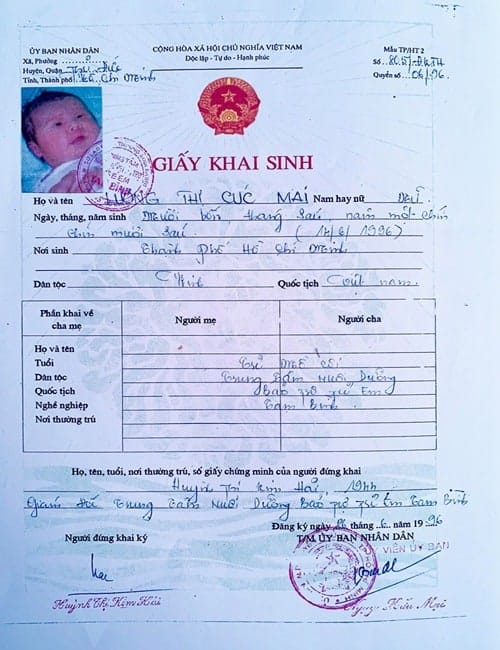 ỦY BAN NHÂN DÂN
Xã, Phường
Huyện, Quận Thủ Đức
Tỉnh, Thành phố Hồ Chí Minh
CỘNG HÒA XÃ HỘI CHỦ NGHĨA VIỆT NAM
Độc lập - Tự do - Hạnh phúc
Mẫu TP/HT 2
Số
Quyển số 06/96
GIẤY KHAI SINH
Họ và tên LƯƠNG THỊ CÚC MAI Nam hay nữ Nữ
Ngày, tháng, năm sinh Mười bốn tháng sáu, năm một chín
chín mươi sáu. (14/6/1996)
Nơi sinh Thành Phố Hồ Chí Minh
Dân tộc Kinh Quốc tịch Việt nam
Phần khai về cha mẹ
Người mẹ
Người cha
Họ và tên
Tuổi Trẻ Mồ Côi
Dân tộc Trung Tâm Nuôi Dưỡng
Quốc tịch Bảo trợ trẻ Em
Nghề nghiệp Tam Bình.
Nơi thường trú
Họ, tên, tuổi, nơi thường trú, số giấy chứng minh của người đứng khai
Huỳnh Thị Kim Hải, 1944
Giám Đốc Trung Tâm Nuôi Dưỡng Bảo Trợ Trẻ Em Tam Bình
Đăng ký ngày tháng 6 năm 1996
Người đứng khai ký
T/M. ỦY BAN NHÂN DÂN
VIÊN ỦY BAN
Huỳnh Thị Kim Hải